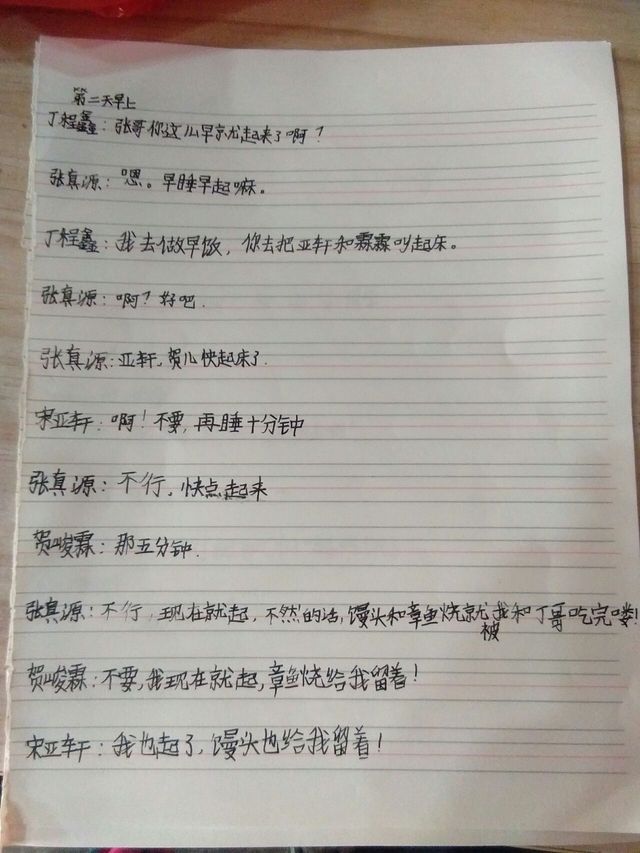 第二天早上
丁程鑫：张哥你这么早就起来了啊？
张真源：嗯。早睡早起嘛。
丁程鑫：我去做早饭，你去把亚轩和霖霖叫起床。
张真源：啊？好吧．
张真源：亚轩，贺儿快起床了．
宋亚轩：啊！不要，再睡十分钟
张真源：不行，快点起来
贺峻霖：那五分钟．
张真源：不行，现在就起，不然的话，馒头和章鱼烧就被我和丁哥吃完喽！
贺峻霖：不要，我现在就起，章鱼烧给我留着！
宋亚轩：我也起了，馒头也给我留着！